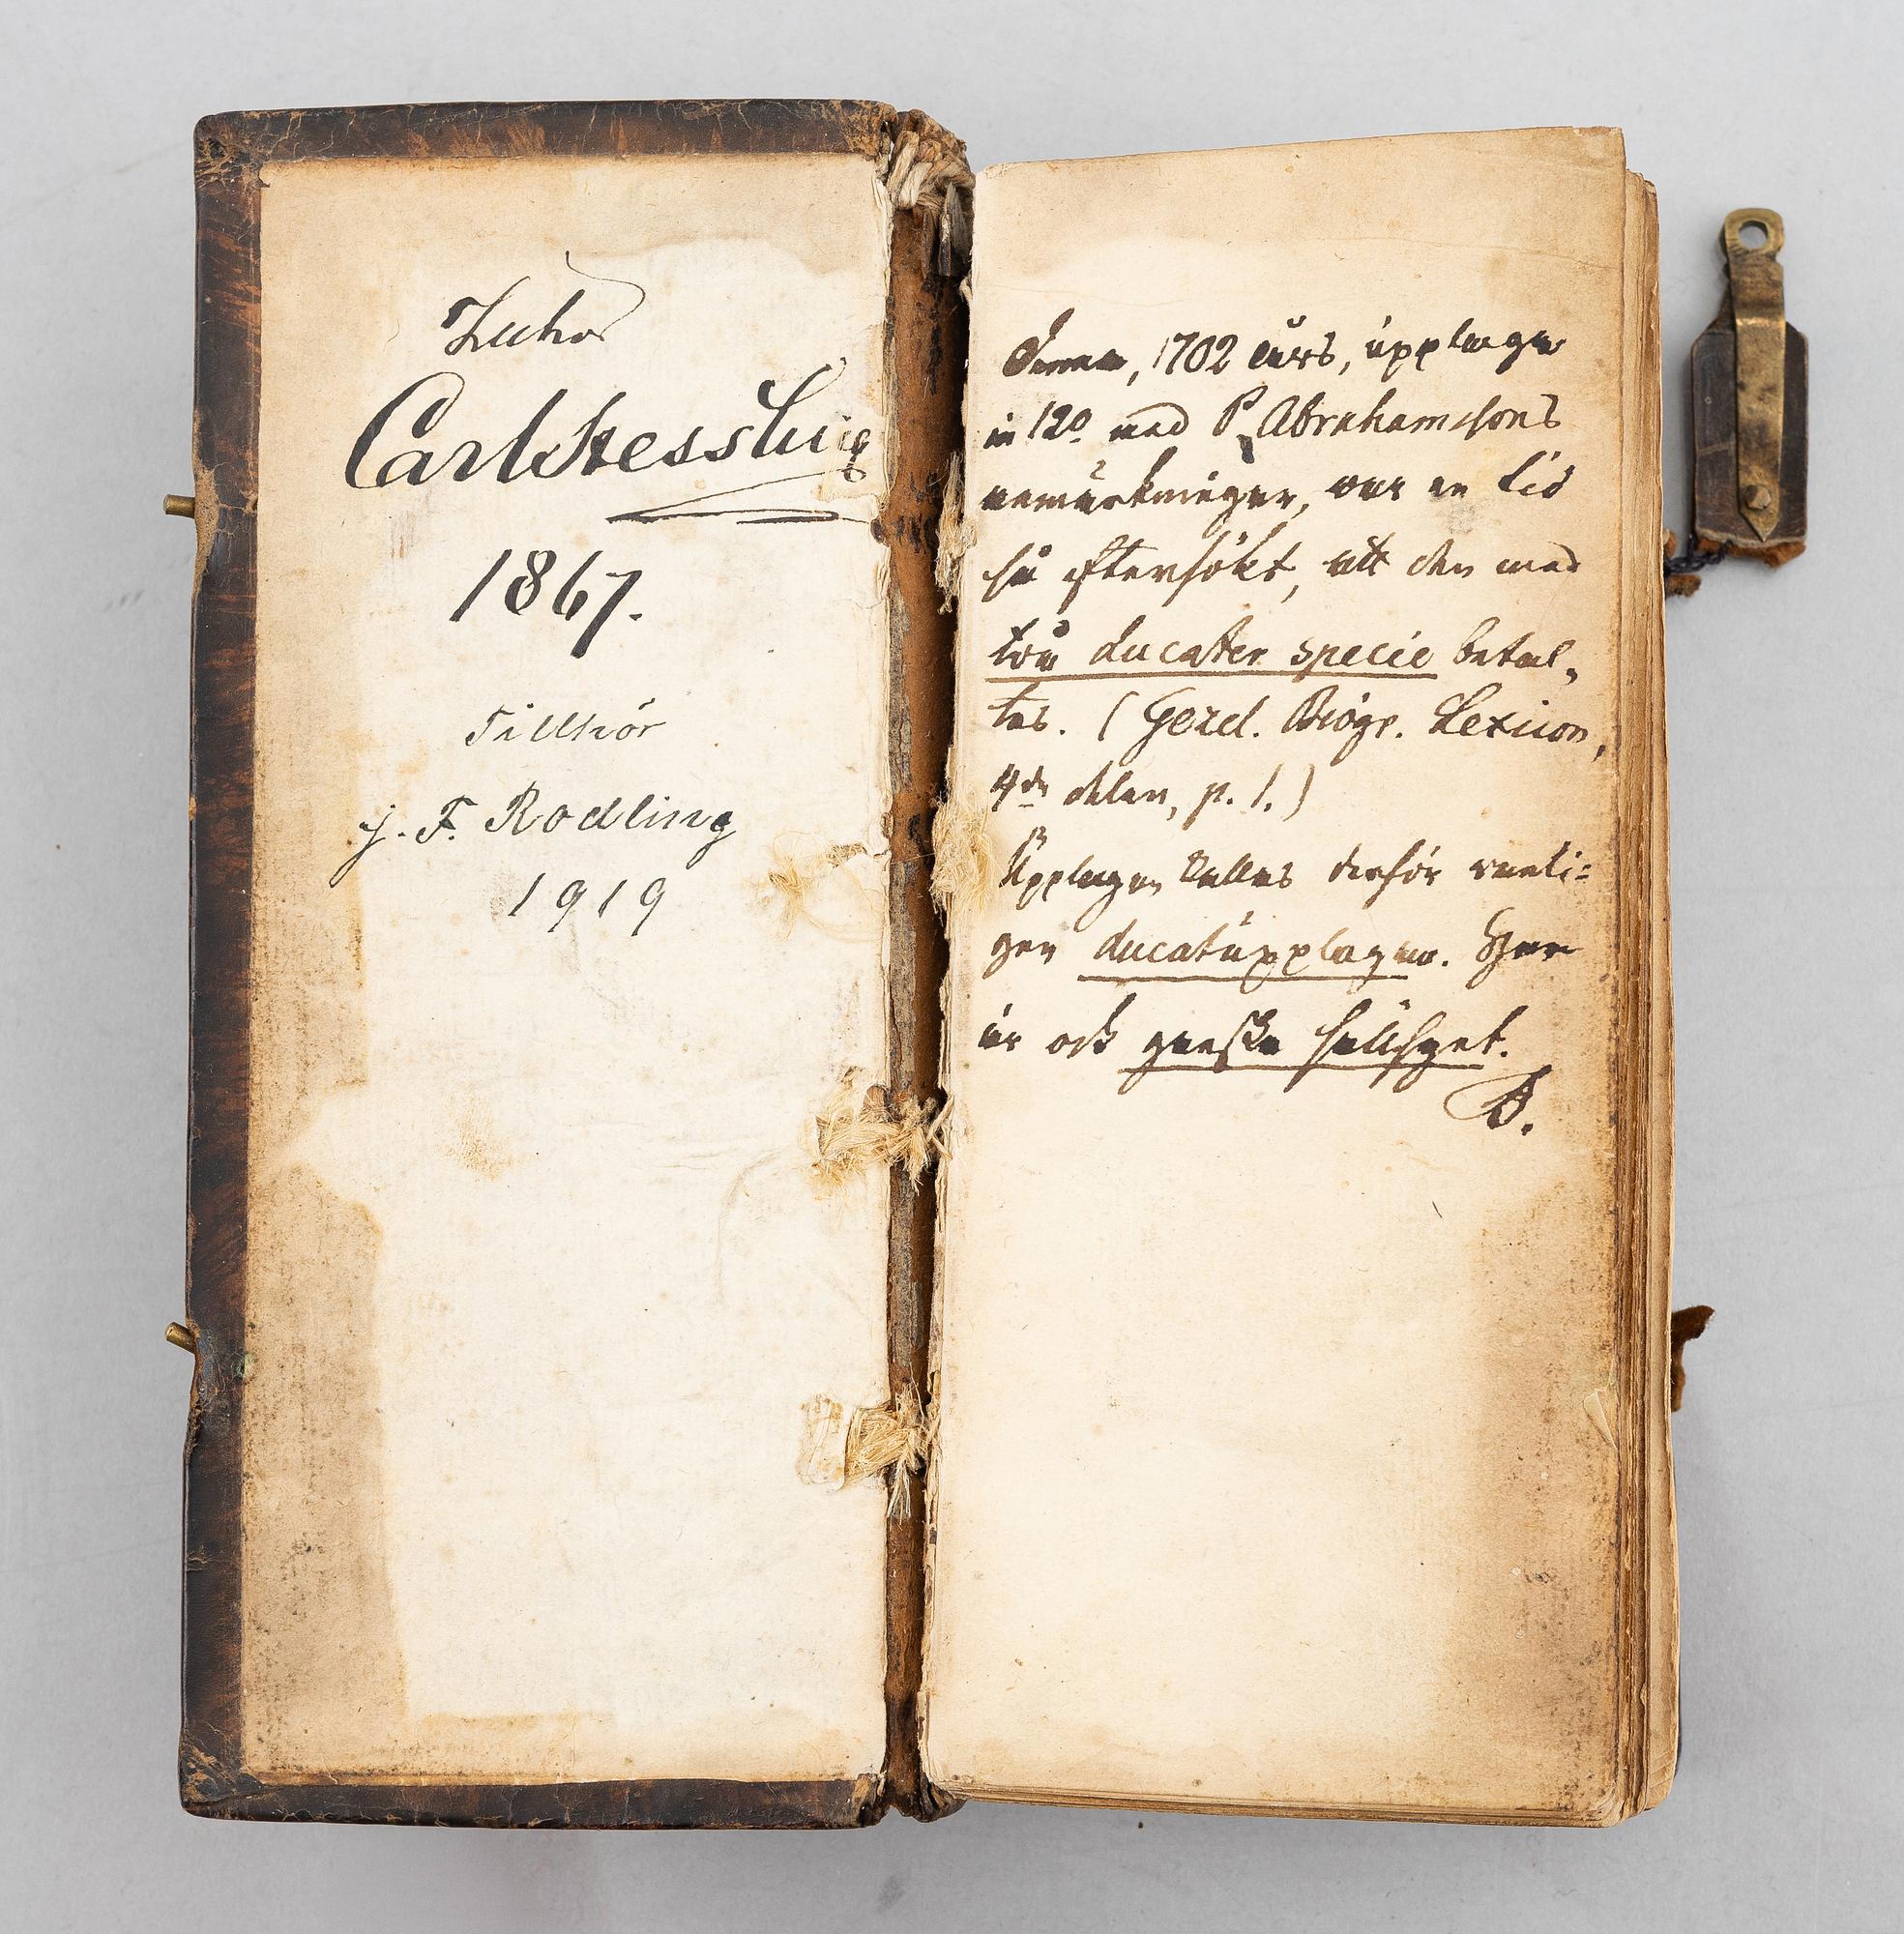 Carl
1867.
Tillhör
J. F. Rodling
1919
Denna, 1702 års, upplaga
in 12º med P Abrahamsons
anmärkningar, war en tid
så eftersökt, att den med
twå ducater specie betal„
tes. (Gezel. Biogr. Lexicon,
4de delen, p. 1.)
Upplagan kallas derför vanli=
gen ducatupplagan. Hon
är ock ganska sällsynt.
B.